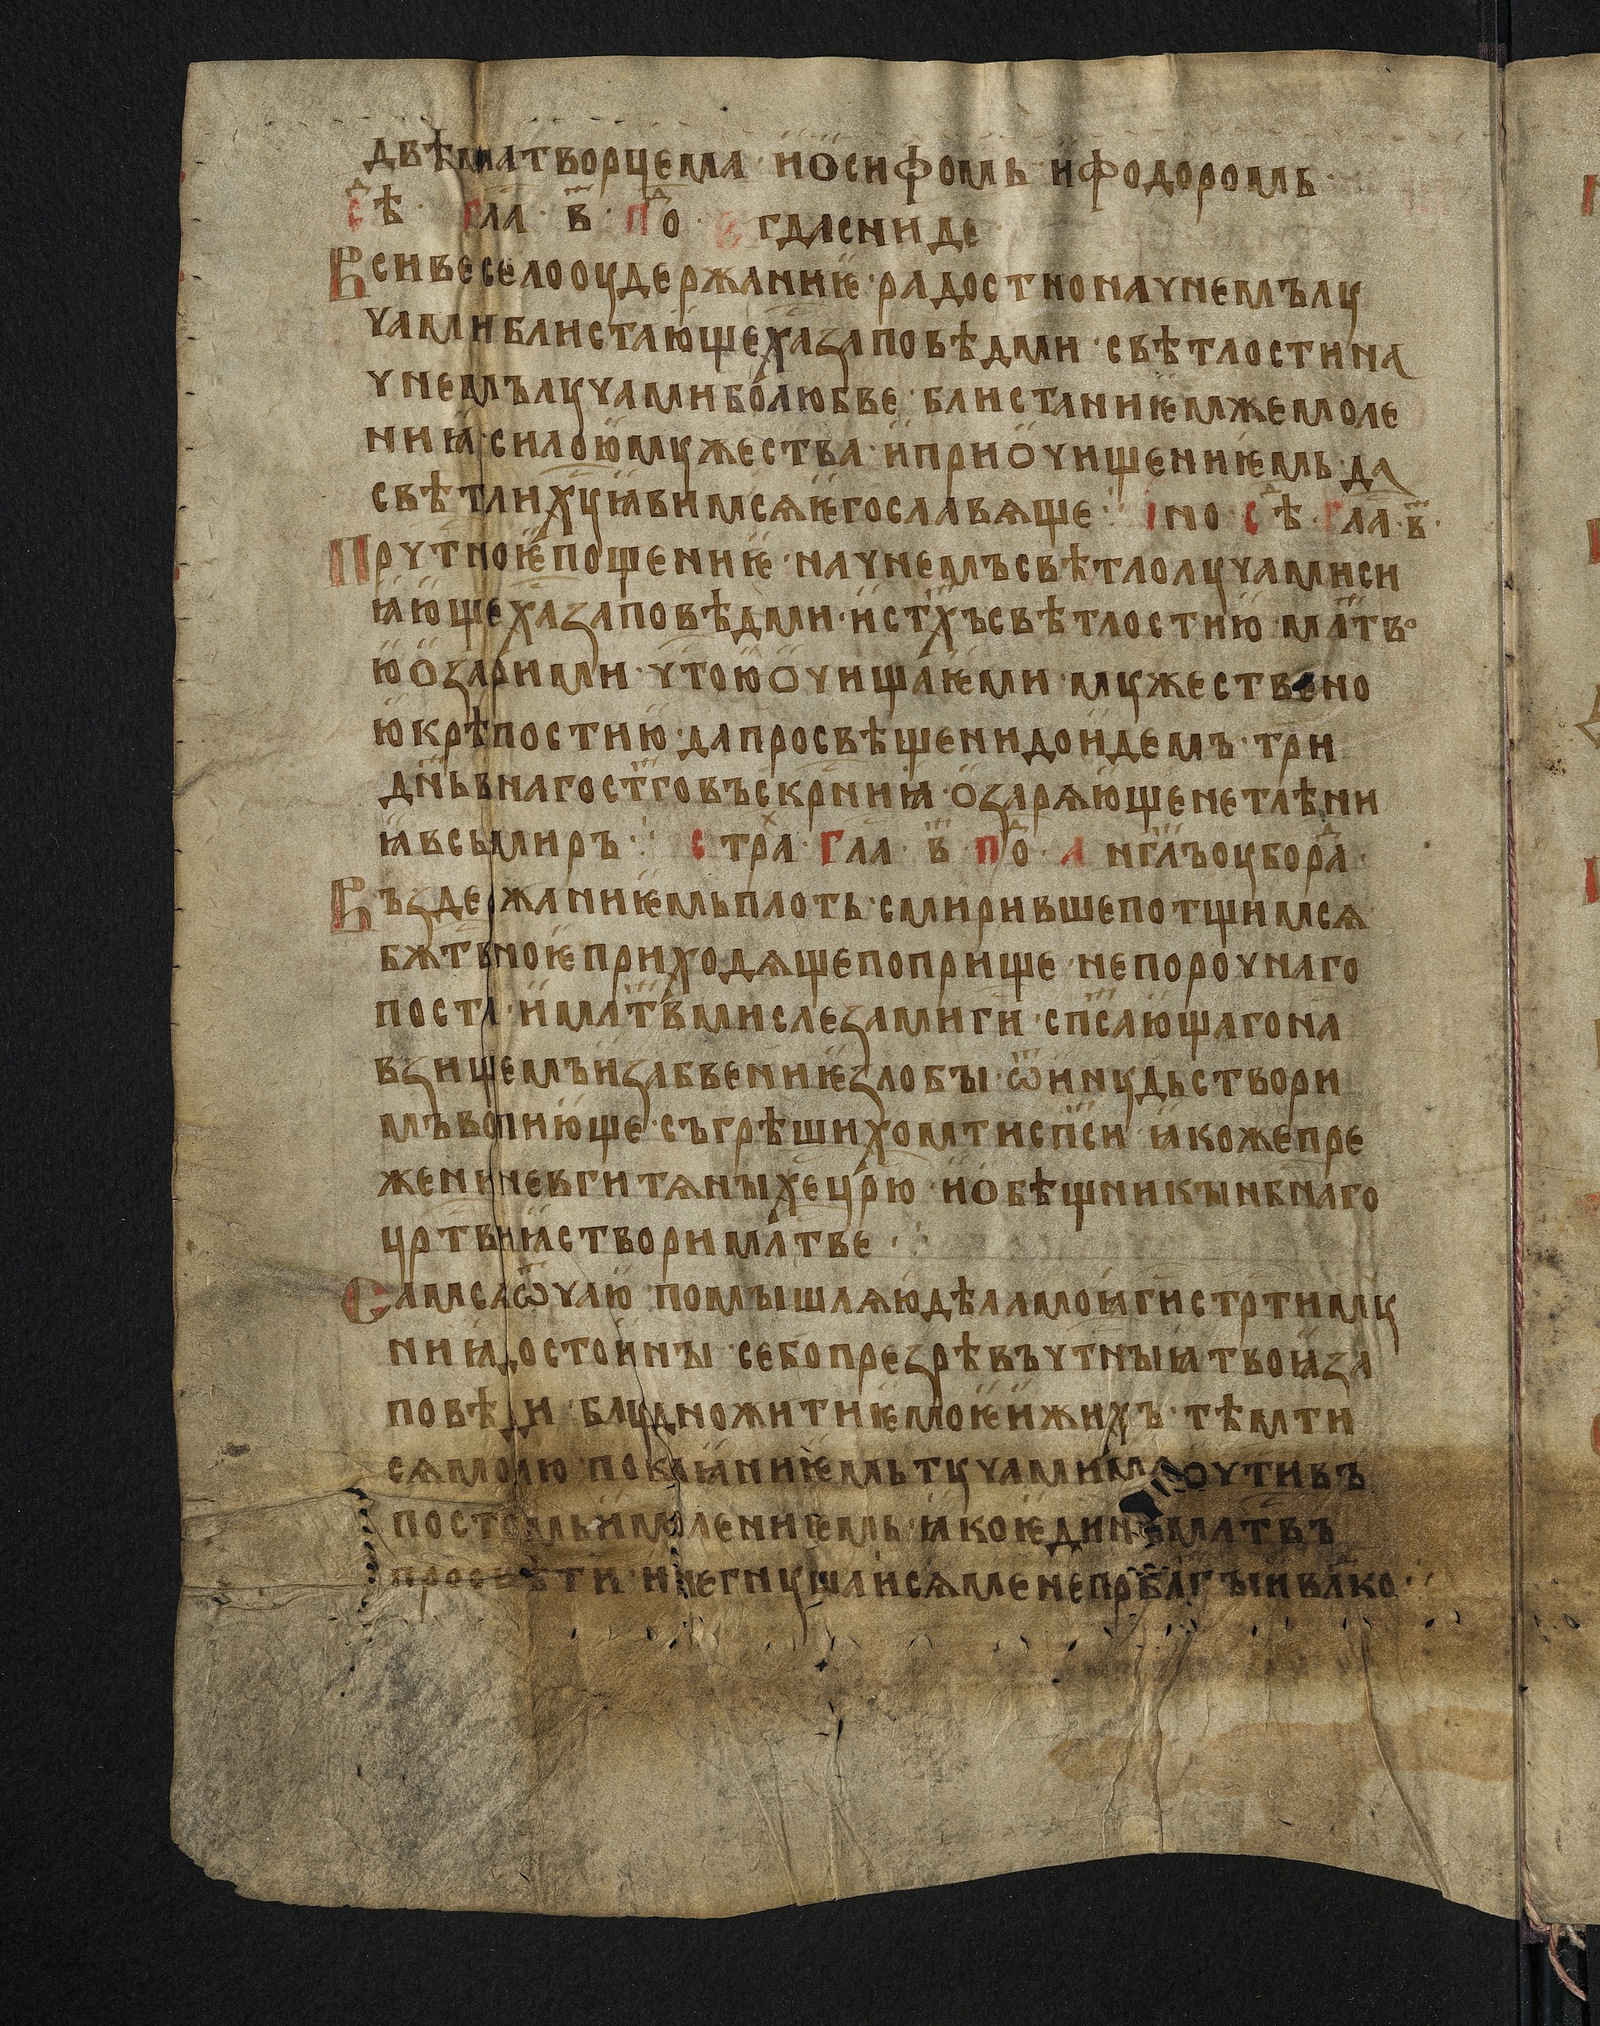 двѣматворцема · иосифомь · ифодоромь ·
сѣⷣ · гла · в҃ · поⷣ · егдасниде ·
Всивеселооудержаниѥ · радостноначнемълу
чамиблистающехазаповѣдми · свѣтлостина
чнемълучамиболюбве · блистаниѥмжемоле
ниꙗ · силоюмужества · иприочищениѥмь · да
свѣтлихуꙗвимсѧѥгославѧще · ⁘ іно · сѣⷣ · гла · в҃ ·
Прчтноѥпощениѥ · начнемъсвѣтлолучамиси
ꙗющехазаповѣдми · истхъсвѣтлостию · млтво
юозарими · чтоюочищаѥми · мужествено
юкрѣпостию · дапросвѣщенидоидемъ · три
дн҃ьвнагостговъскрниꙗ · озарѧющенетлѣни
ꙗвсьмиръ · ⁘ страⷯ · гла · в҃ · поⷣ · англъоубораⷣ ·
Въздержаниѥмьплоть · смирившепотщимсѧ
бжтвноѥприходѧщепоприще · непорочнаго
поста · имлтвмислезамиги · спсающагона
взищемъизабвениѥзлобы · ѿинудьствори
мъвопиюще · съгрѣшихомтиспси · ꙗкожепре
жениневгитѧныхецрю · иобѣщникынбнаго
цртвиꙗстворимлтве · ⁘
Самсѧѿчаю помышлѧюдѣламоꙗгистртимлу
ниꙗдостоины · себопрезрѣвъчтныꙗтвоꙗза
повѣди · блудножитиѥмоѥижихъ · тѣмти
сѧмолю · покаꙗниѥмьтучами очтивъ
постомьимолениѥмь · ꙗкоѥдинъмлтвъ
просвѣти · инегнушаисѧменепрблгыивлко · ⁘